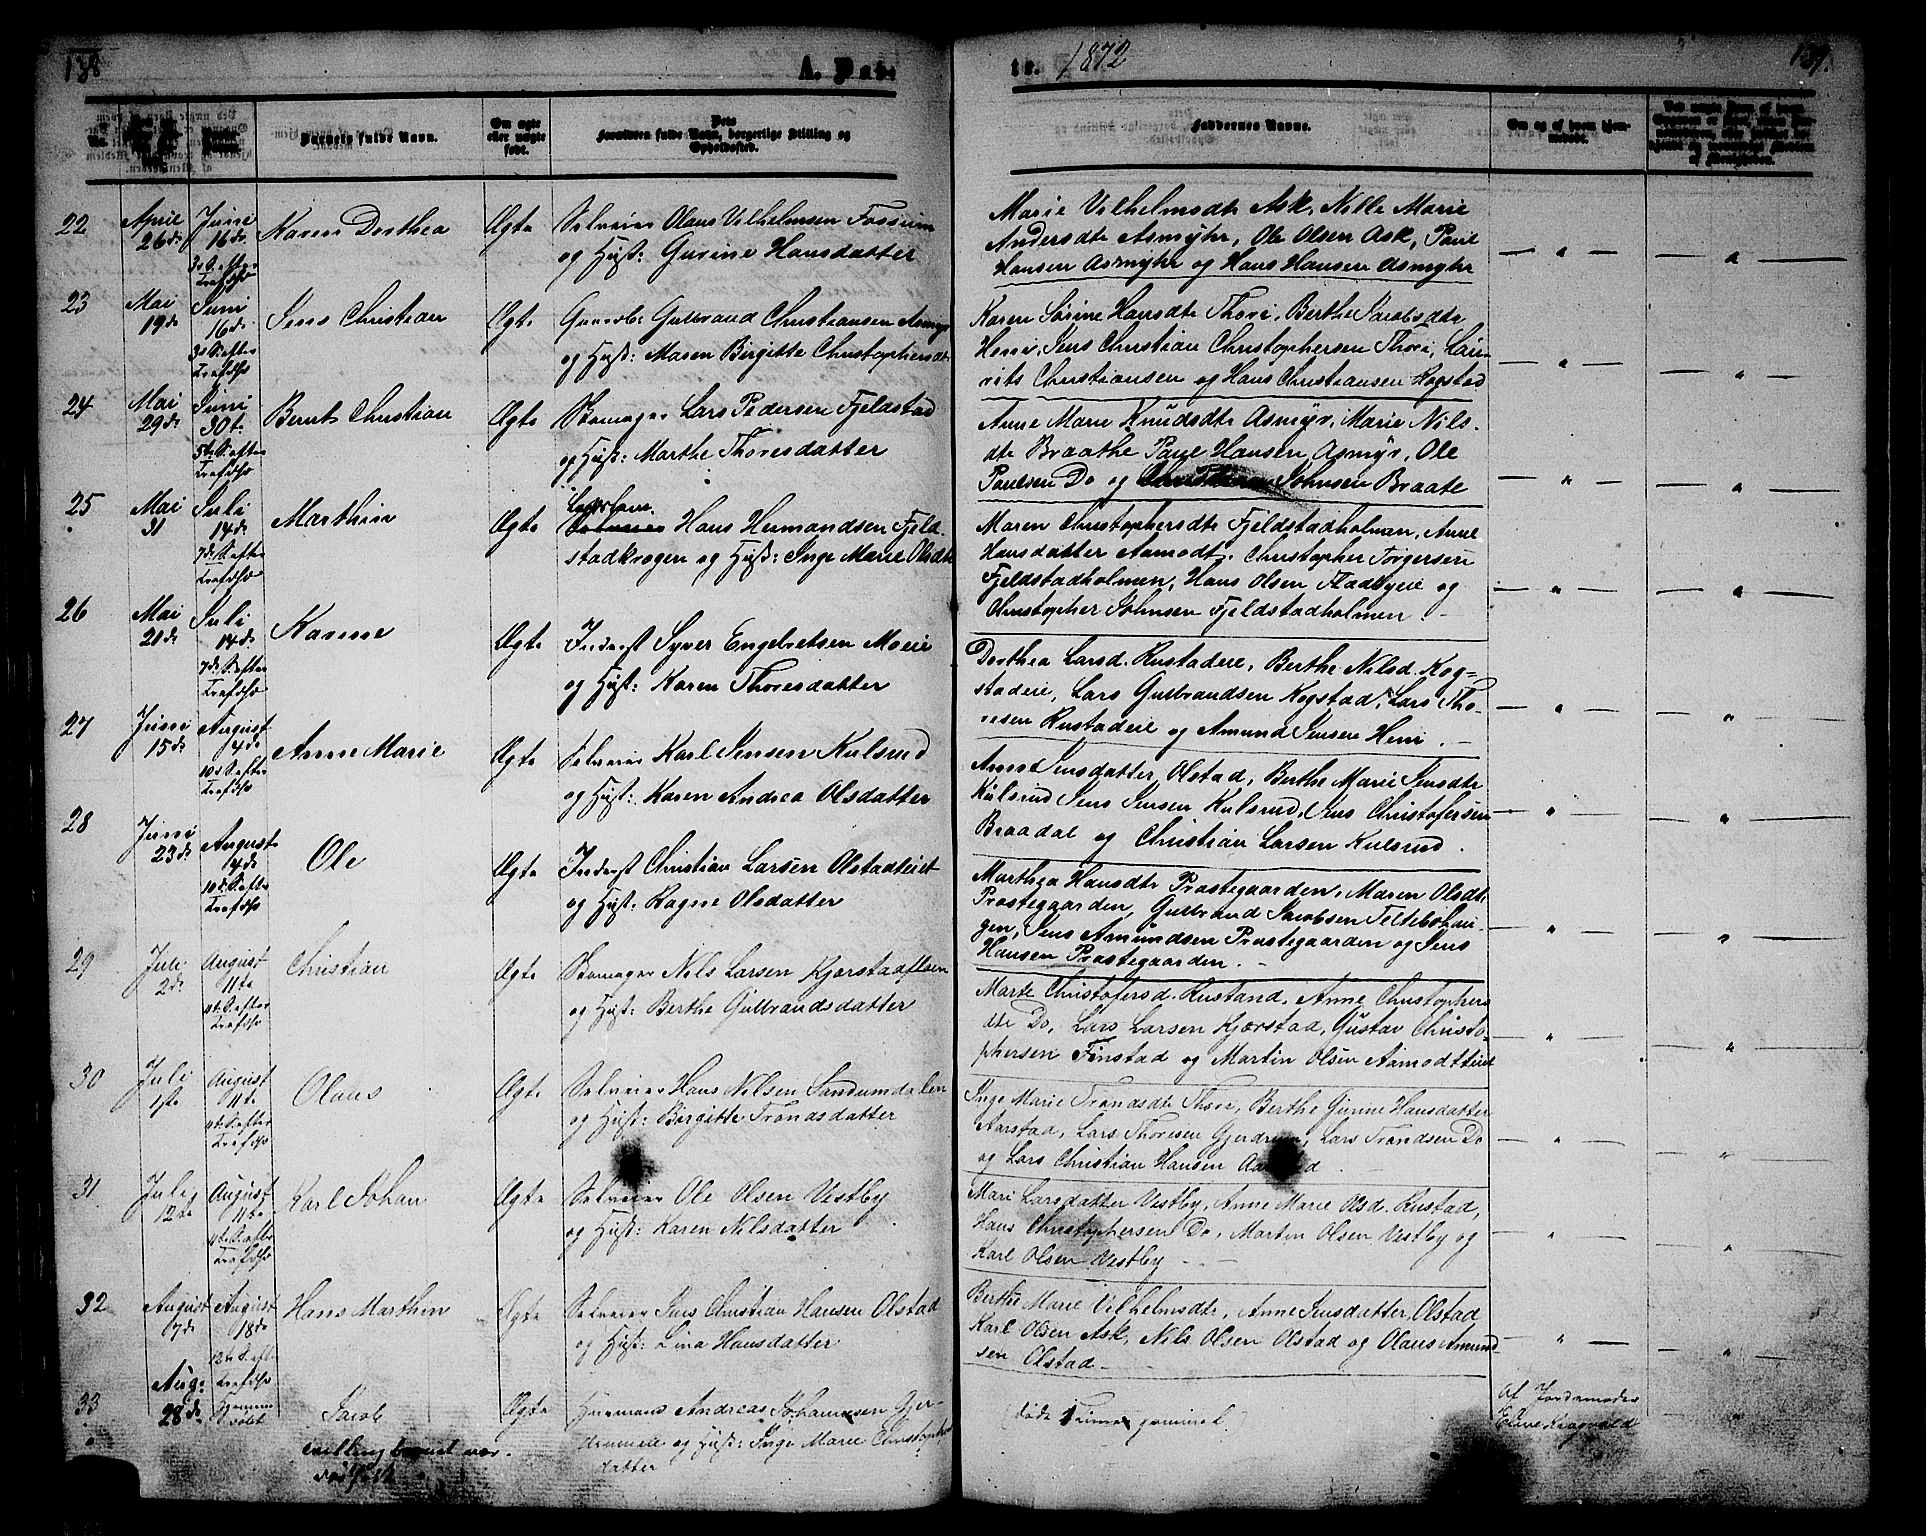 138
A. Døb-
te. 1872
139.
Barnets fulde Navn.
Om ægte
eller uægte
født.
Dets
Forældres fulde Navn, borgerlige Stilling og
Opholdssted.
Faddernes Navne.
Om og af hvem hjem-
medøbt.
22 April 26de Juni 16de 3de S. efter Trefdhs Karen Dorthea Ægte Selveier Olaus Vilhelmsen Fossum
og Hust: Gurine Hansdatter
Marie Vilhelmsdtr Ask, Nille Marie
Andersdtr Asmyhr, Ole Olsen Ask, Paul
Hansen Asmyhr og Hans Hansen Asmyhr
— " — — " —
23 Mai 19de Juni 16de 3de S. efter Trefdhs Jens Christian Ægte Gaardb: Gulbrand Christiansen Asmyr
og Hust: Maren Birgitte Christophersdtr
Karen Sörine Hansdtr Thori, Berthe Jacobsdtr
Henni, Jens Christian Christophersen Thori, Lau-
rits Christiansen og Hans Christiansen Kogstad
— " — — " —
24 Mai 29de Juni 30te 5te S. efter Trefdhs Bernt Christian Ægte Skomager Lars Pedersen Fjeldstad
og Hust: Marthe Thoresdatter
Anne Marie Knudsdtr Asmyr, Marie Nils-
dtr Braathe, Paul Hansen Asmyr, Ole
Paulsen Do og Johnsen Braate
— " — — " —
25 Mai 31 Juli 14de 7de S. efter Trefdhs Marthin Ægte Selveier Hans Hermandsen Fjeld-
stadkrogen og Hust: Inge Marie Olsdtr
Maren Christophersdtr Fjeldstadholman, Anne
Hansdatter Aamodt, Christopher Torgersen
Fjeldstadholmen, Hans Olsen Fladbyeie og
Christopher Johnsen Fjeldstadholmen.
— " — — " —
26 Mai 21de Juli 14de 7de S. efter Trefdhs Karine Ægte Inderst Syver Engebretsen Moeie
og Hust: Karen Thoresdatter
Dorthea Larsd. Rustadeie, Berthe Nilsd. Kog-
stadeie, Lars Gulbrandsen Kogstad, Lars Tho-
resen Rustadeie og Amund Jensen Heni. —
— " — — " —
27 Juni 15de August 4de 10de S. efter Trefdhs Anne Marie Ægte Selveier Karl Jensen Kulsrud
og Hust: Karen Andrea Olsdatter
Anne Jensdatter Olstad, Berthe Marie Jensdtr
Kulsrud, Jens Jensen Kulsrud, Jens Christofersen
Braadal og Christian Larsen Kulsrud.
— " — — " —
28 Juni 23de August 4de 10de S. efter Trefdhs Ole Ægte Inderst Christian Larsen Olstadteiet
og Hust: Ragne Olsdatter
Marthea Hansdtr Præstegaarden, Maren Olsdtr
Præstegaarden, Gulbrand Jacobsen Teltebohau-
gen, Jens Amundsen Præstegaarden og Jens
Hansen Præstegaarden. —
— " — — " —
29 Juli 2de August 11te 11te S. efter Trefdhs Christian Ægte Skomager Nils Larsen Kjærstadflaen
og Hust: Berthe Gulbrandsdatter
Marte Christofersd. Rustand, Anne Christophers
dtr Do, Lars Larsen Kjærstad, Gustav Christo-
phersen Finstad og Martin Olsen Aamodteiet
— " — — " —
30 Juli 1ste August 11te 11te S. efter Trefdhs Olaus Ægte Selveier Hans Nilsen Sandumdalen
og Hust: Birgitte Trondsdatter
Inge Marie Trondsdtr Thori, Berthe Gurine Hansdatter
Aarstad, Lars Thoresen Gjerdrum, Lars Trondsen Do
og Lars Christian Hansen Aarstad —
— " — — " —
31 Juli 12te August 11te 11te S. efter Trefdhs Karl Johan Ægte Selveier Ole Olsen Vestby
og Hust: Karen Nilsdatter
Mari Larsdatter Vestby, Anne Marie Olsd. Rustad,
Hans Christophersen Do, Martin Olsen Vestby og
Karl Olsen Vestby — —
— " — — " —
32 August 7de August 18de 12te S. eft. Trefdhs Hans Marthin Ægte Selveier Jens Christian Hansen Olstad
og Hust: Lina Hansdatter
Berthe Marie Vilhelmsdtr, Anne Jensdatter Olstad
Karl Olsen Ask, Nils Olsen Olstad og Olaus Amund-
sen Olstad —
— " — — " —
33 Aug: 28de Hjemme døbt Jacob Ægte Huusmand Andreas Johannesen Gjer-
drumeie og Hust: Inge Marie Christopher
datter
tvilling barnet var
dødfødt
døde 1 time gammel
Af Jordemoder
Eline Kragvold
— " —